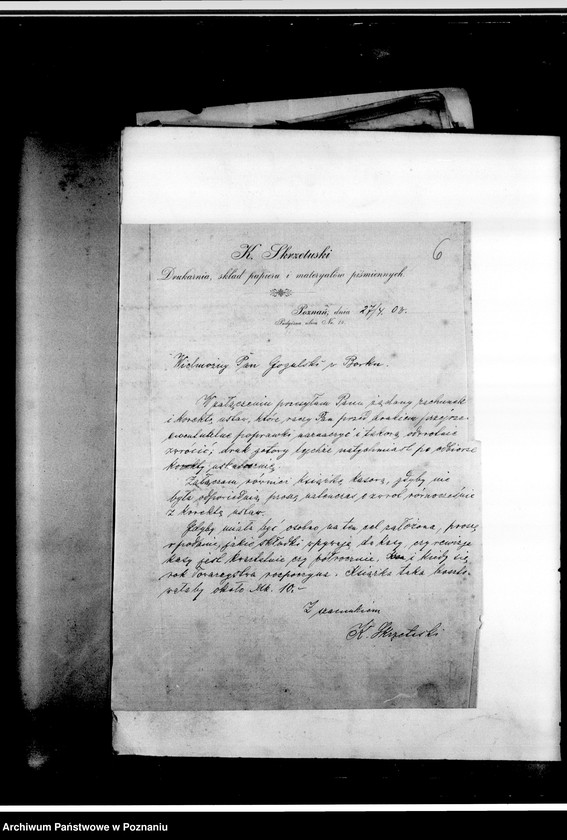 6
K. Skrzetuski
Drukarnia, skład papieru i materyałów piśmiennych.
Poznań, dnia 27/4. 08.
No. 11.
Wielmożny Pan Gogulski w Borku.
W załączeniu przesyłam Panu żądany rachunek
i korektę ustaw, które raczy Pan przed drukiem przejrzeć
ewentualne poprawki zaznaczyć i takową odwrotnie
zwrócić; druk gotowy będzie natychmiast po odbiorze
korekty
Załączam również książkę kasową, gdyby nie
była odpowiednią, proszę natenczas o zwrot równocześnie
z korektą ustaw.
Gdyby miała być osobno na ten cel założona, proszę
o podanie, jakie składki wpływają do kasy, czy rewizja
kasy jest kwartalnie czy półrocznie, i kiedy się
rok rozpoczyna. Książka taka koszto-
wałaby około Mk. 10.-
Z szacunkiem
K. Skrzetuski
Archiwum Państwowe w Poznaniu